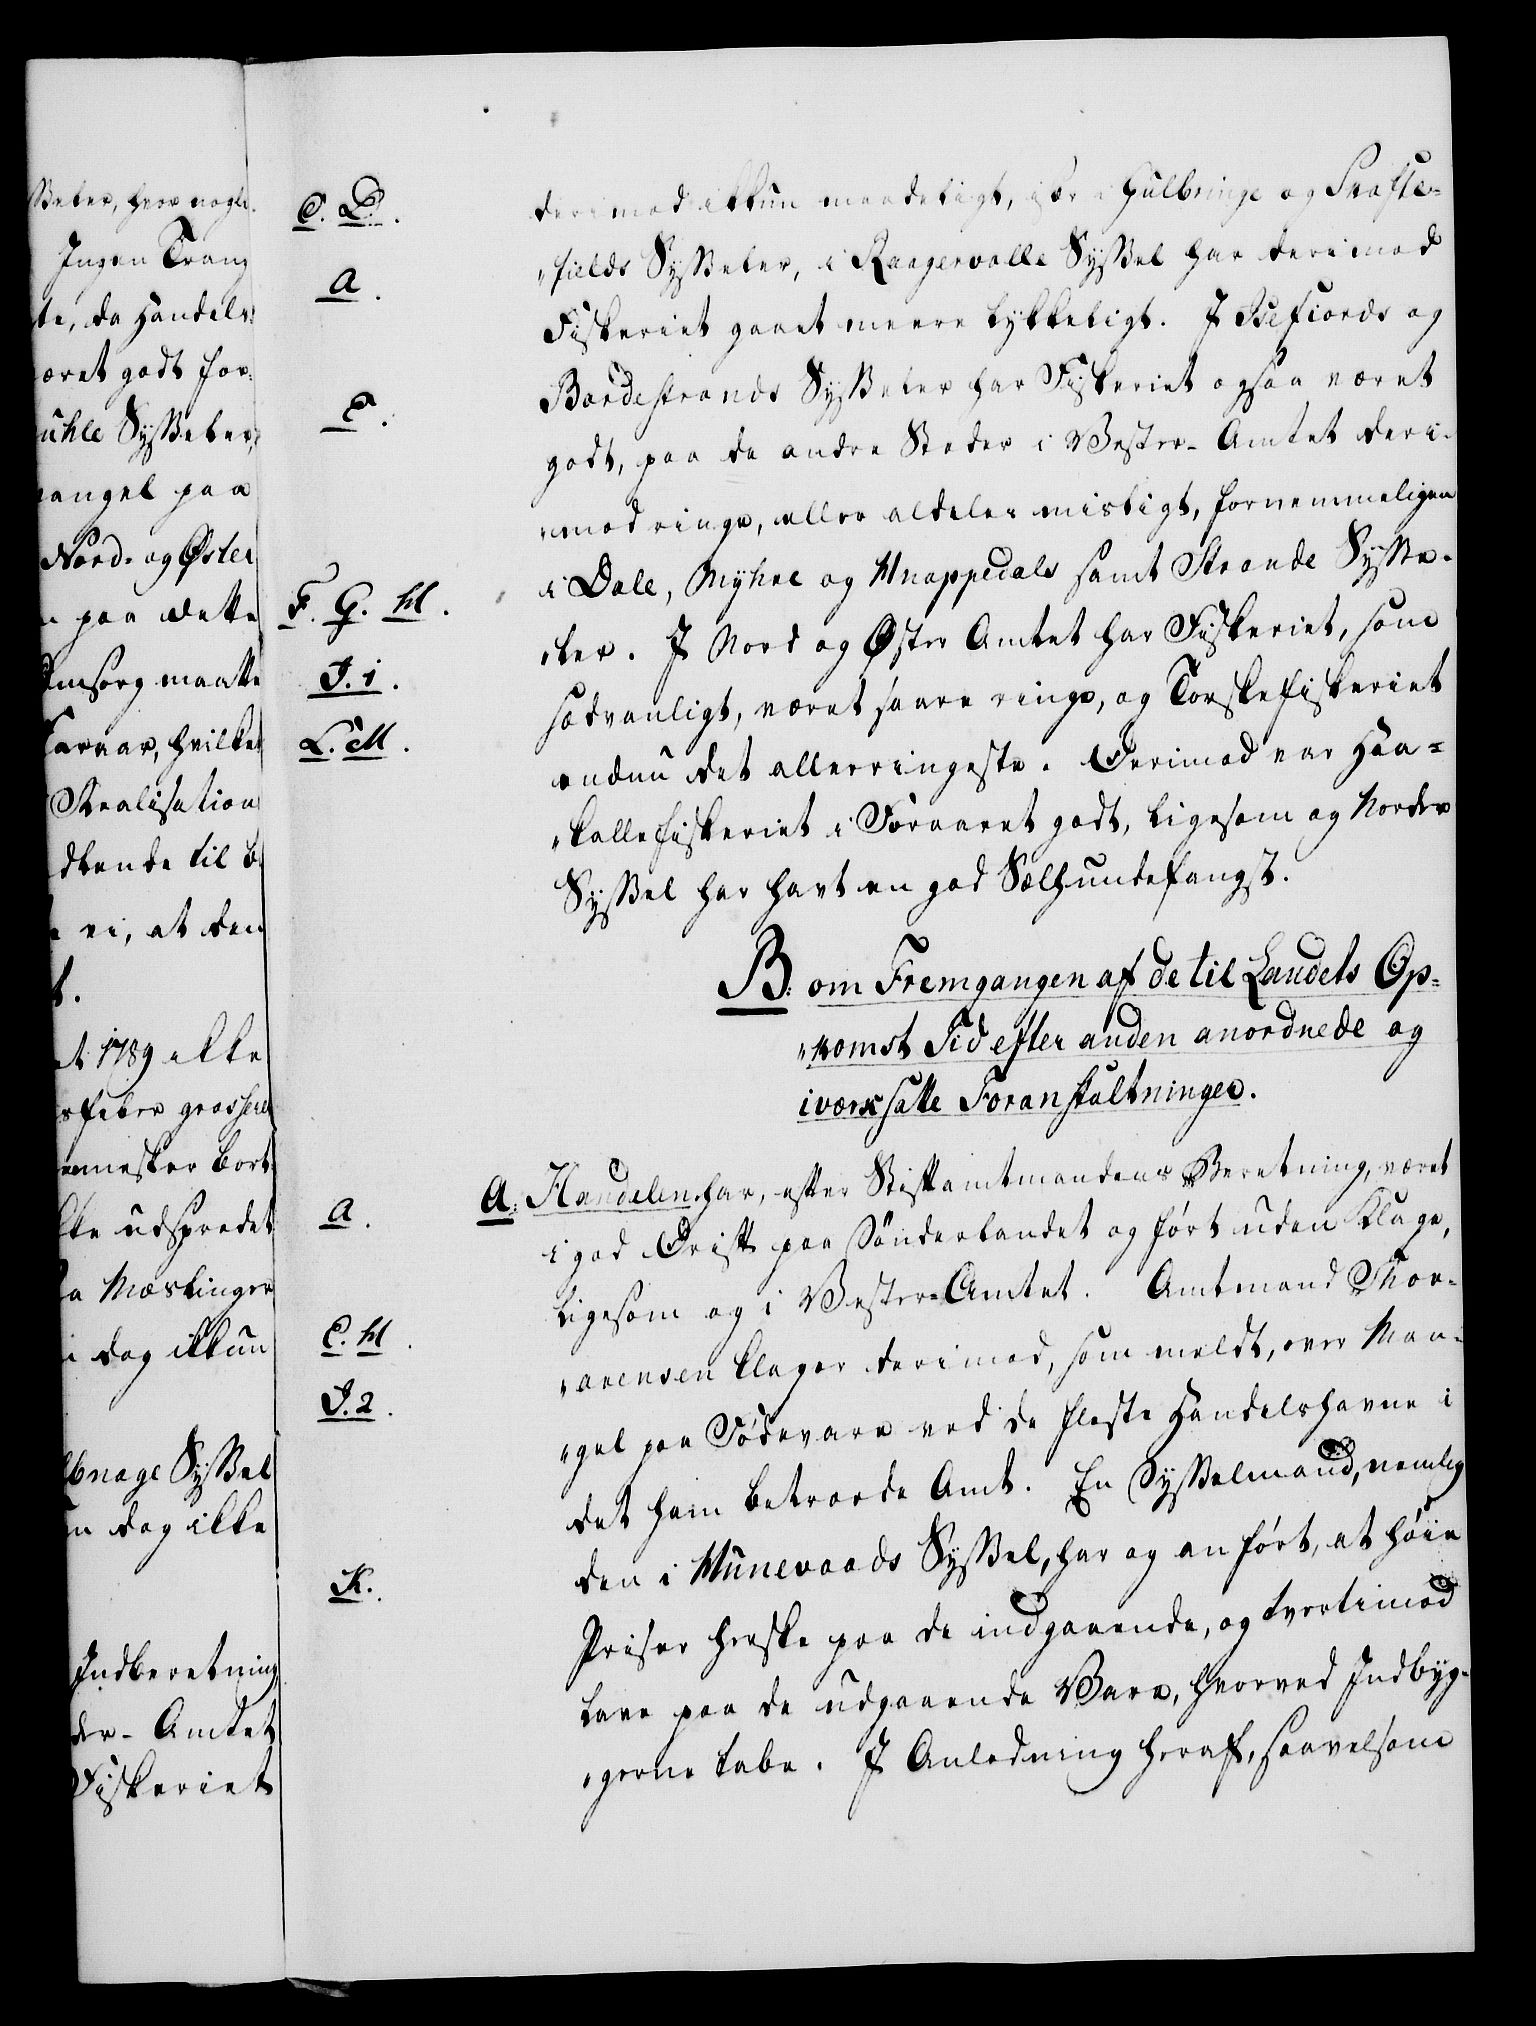 ßeler, hvor nogle
Ingen Trang
te, da Handels-
æret godt for-
uhle Sysseler,
angel paa
Nord- og Øster
paa dette
Omsorg maatte
varer, hvilke
Realisation
dkende til b
vi, at den
t.
et 1789 ikke
sfeber grasseret
ennesker bort
ke udspredet
a Mæslinger
i dog ikkun
bnage Syssel
n dog ikke
Indberetning
der- Amtet
Fiskeriet
C. D.
derimod ikkun maadeligt, især i Gulbringe og Snæfie-
"fields Sysseler, i Raagervalle Syssel har derimod
A.
Fiskeriet gaaet meere lykkeligt. I Isefiords og
Bardestrands Sysseler har Fiskeriet ogsaa været
E.
godt, paa de andre Steder i Vester-Amtet deri-
"mod ringe, eller aldeles misligt, fornemmeligen
i Dale, Myhre og Knappedals samt Strande Sysse-
F. G. H.
"ler. I Nord og Øster Amtet har Fiskeriet, som
I. 1.
sædvanligt, været saare ringe, og Torskefiskeriet
L. M.
endnu det allerringeste. Derimod var Haa-
"kallefiskeriet i Foraaret godt, ligesom og Norder
Syssel har havt en god Sælhundefangst.
B: om Fremgangen af de til Landets Op-
"komst Tid efter anden anordnede og
iværksatte Foranstaltninger.
A.
A: Handelen har, efter Stiftamtmandens Beretning, været
i god Drift paa Sønderlandet og ført uden Klage,
ligesom og i Vester-Amtet. Amtmand Thor-
E. H.
"arensen klager derimod, som meldt, over Man-
I. 2.
"gel paa Fødevare ved de fleste Handelshavne i
det ham betroede Amt. En Sysselmand, nemlig
den i Hunevands Syssel, har og anført, at høie
K.
Priser herske paa de indgaaende, og tvertimod
lave paa de udgaaende Vare, hvorved Indbyg-
"gerne tabe. I Anledning heraf, saavelsom